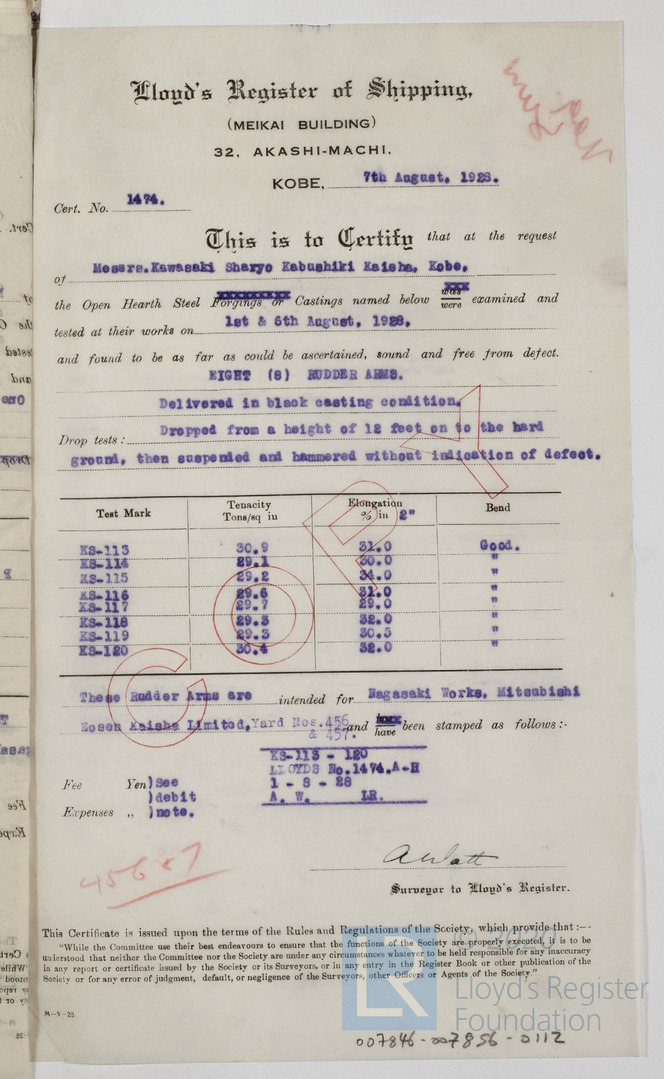 Lloyd's Register of Shipping,
(MEIKAI BUILDING)
32, AKASHI-MACHI.
KOBE, 7th August, 1928.
Cert. No. 1474.
This is to Certify that at the request
of Messrs.Kawasaki Sharyo Kabushiki Kaisha, Kobe,
the Open Hearth Steel Forgings or Castings named below was were examined and
tested at their works on 1st & 6th August, 1928,
and found to be as far as could be ascertained, sound and free from defect.
EIGHT (8) RUDDER ARMS.
Delivered in black casting condition.
Drop tests: Dropped from a height of 12 feet on to the hard
ground, then suspended and hammered without indication of defect.
Test Mark Tenacity Tons/sq in Elongation % in 2" Bend
KS-113 30.9 31.0 Good.
KS-114 29.1 30.0 "
KS-115 29.2 34.0 "
KS-116 29.6 31.0 "
KS-117 29.7 29.0 "
KS-118 29.3 32.0 "
KS-119 29.3 30.5 "
KS-120 30.4 32.0 "
COPY
These Rudder Arms are intended for Nagasaki Works, Mitsubishi
Zosen Kaisha Limited, Yard Nos. 456 and have been stamped as follows:-
& 457.
KS-113 - 120
LLOYDS No.1474.A-H
1 - 8 - 28
A. W. LR.
Fee Yen )See
)debit
Expenses „ )note.
456 & 7
A Watt
Surveyor to Lloyd's Register.
This Certificate is issued upon the terms of the Rules and Regulations of the Society, which provide that :—
"While the Committee use their best endeavours to ensure that the functions of the Society are properly executed, it is to be
understood that neither the Committee nor the Society are under any circumstances whatever to be held responsible for any inaccuracy
in any report or certificate issued by the Society or its Surveyors, or in any entry in the Register Book or other publication of the
Society or for any error of judgment, default, or negligence of the Surveyors, other Officers or Agents of the Society."
M-5-28
© 2020
LR
Lloyd's Register
Foundation
007846-007856-0112